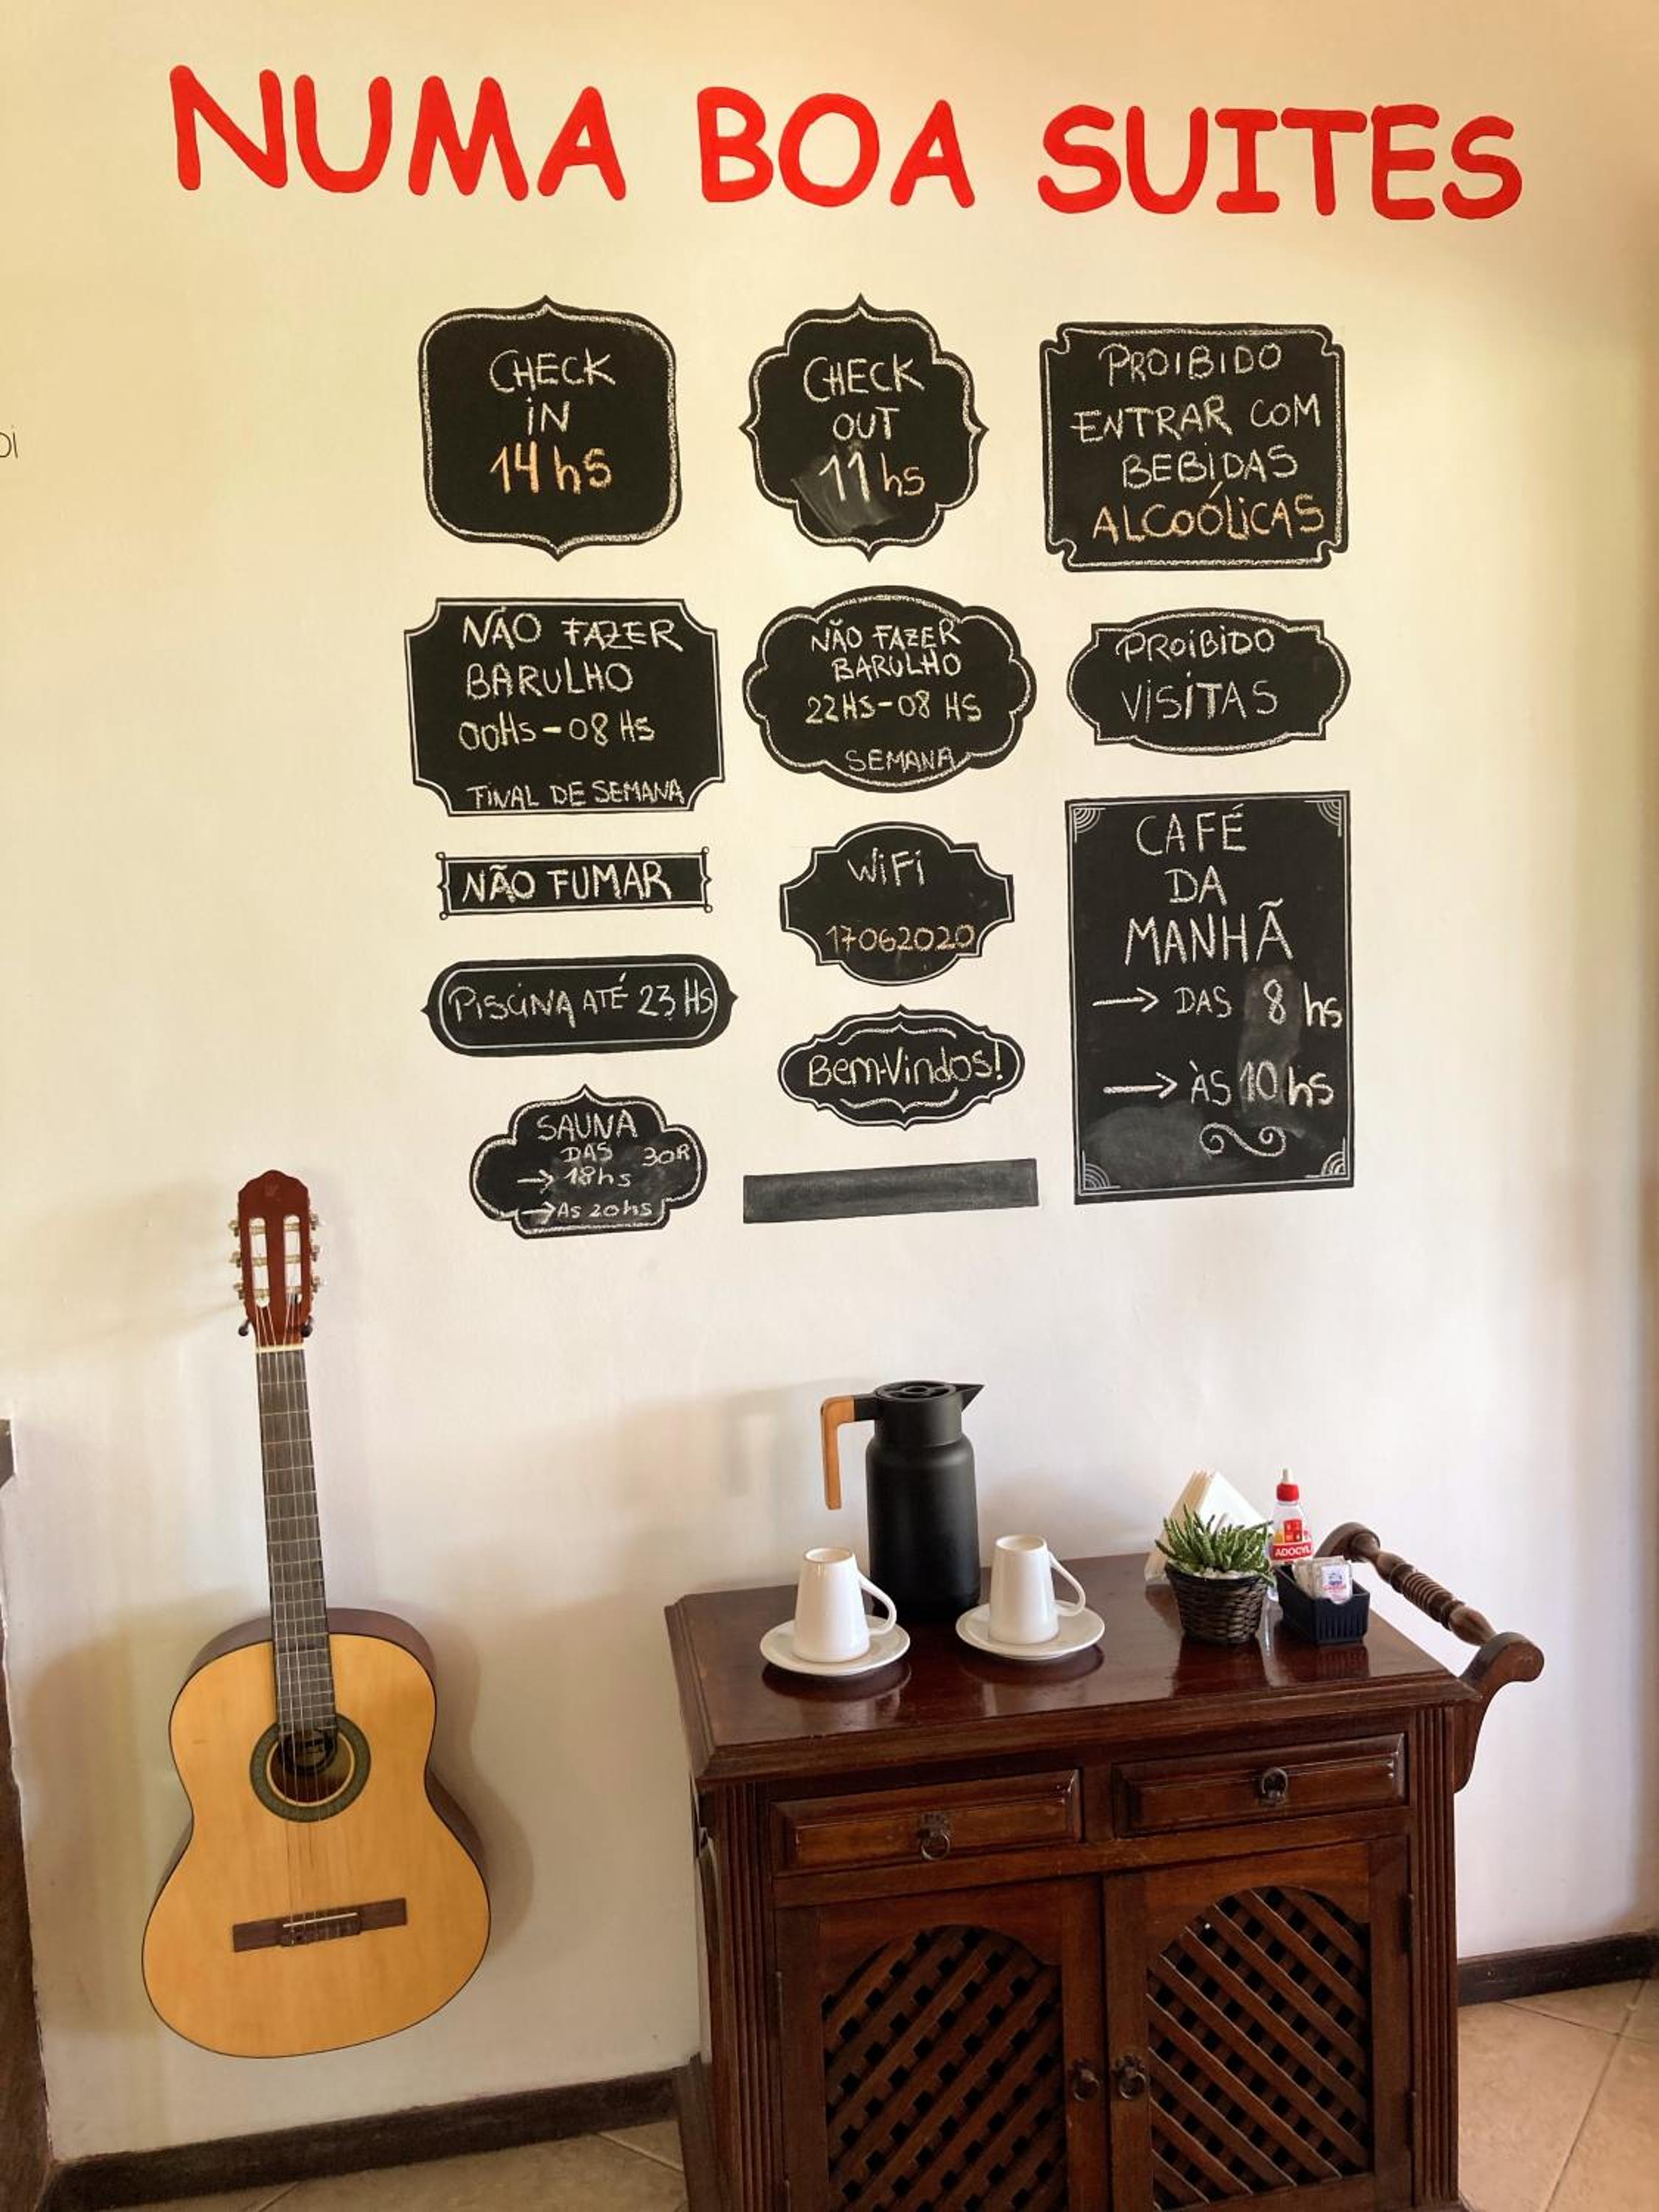 NUMA BOA SUITES
CHECK
IN
14 hs
CHECK
OUT
11 hs
PROIBIDO
ENTRAR COM
BEBIDAS
ALCOÓLICAS
NÃO FAZER
BARULHO
00HS-08 HS
FINAL DE SEMANA
NÃO FAZER
BARULHO
22HS-08 HS
SEMANA
PROIBIDO
VISITAS
NÃO FUMAR
WIFI
17062020
CAFÉ
DA
MANHÃ
→ DAS 8 hs
→ ÀS 10 hs
PISCINA ATÉ 23 HS
Bem-Vindos!
SAUNA
DAS 30R
→ 18hs
→ As 20hs
ADOCYL